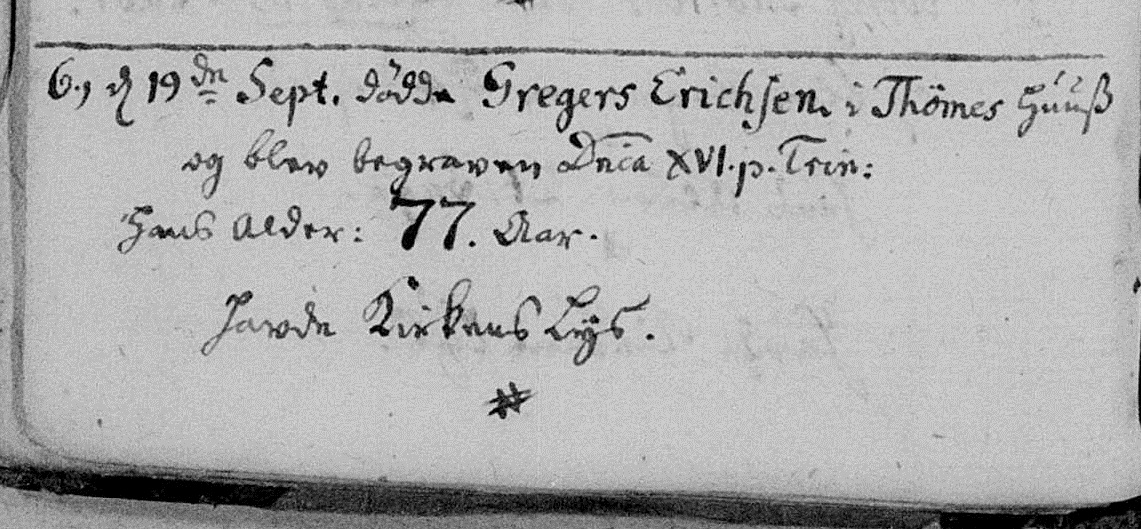 6., d 19 dn Sept. dödde Gregers Erichsen i Thömes Huuß
og blev begraven Dnica XVI. p. Trin:
Hans Alder: 77. Aar.
Havde Kirkens Lÿs.